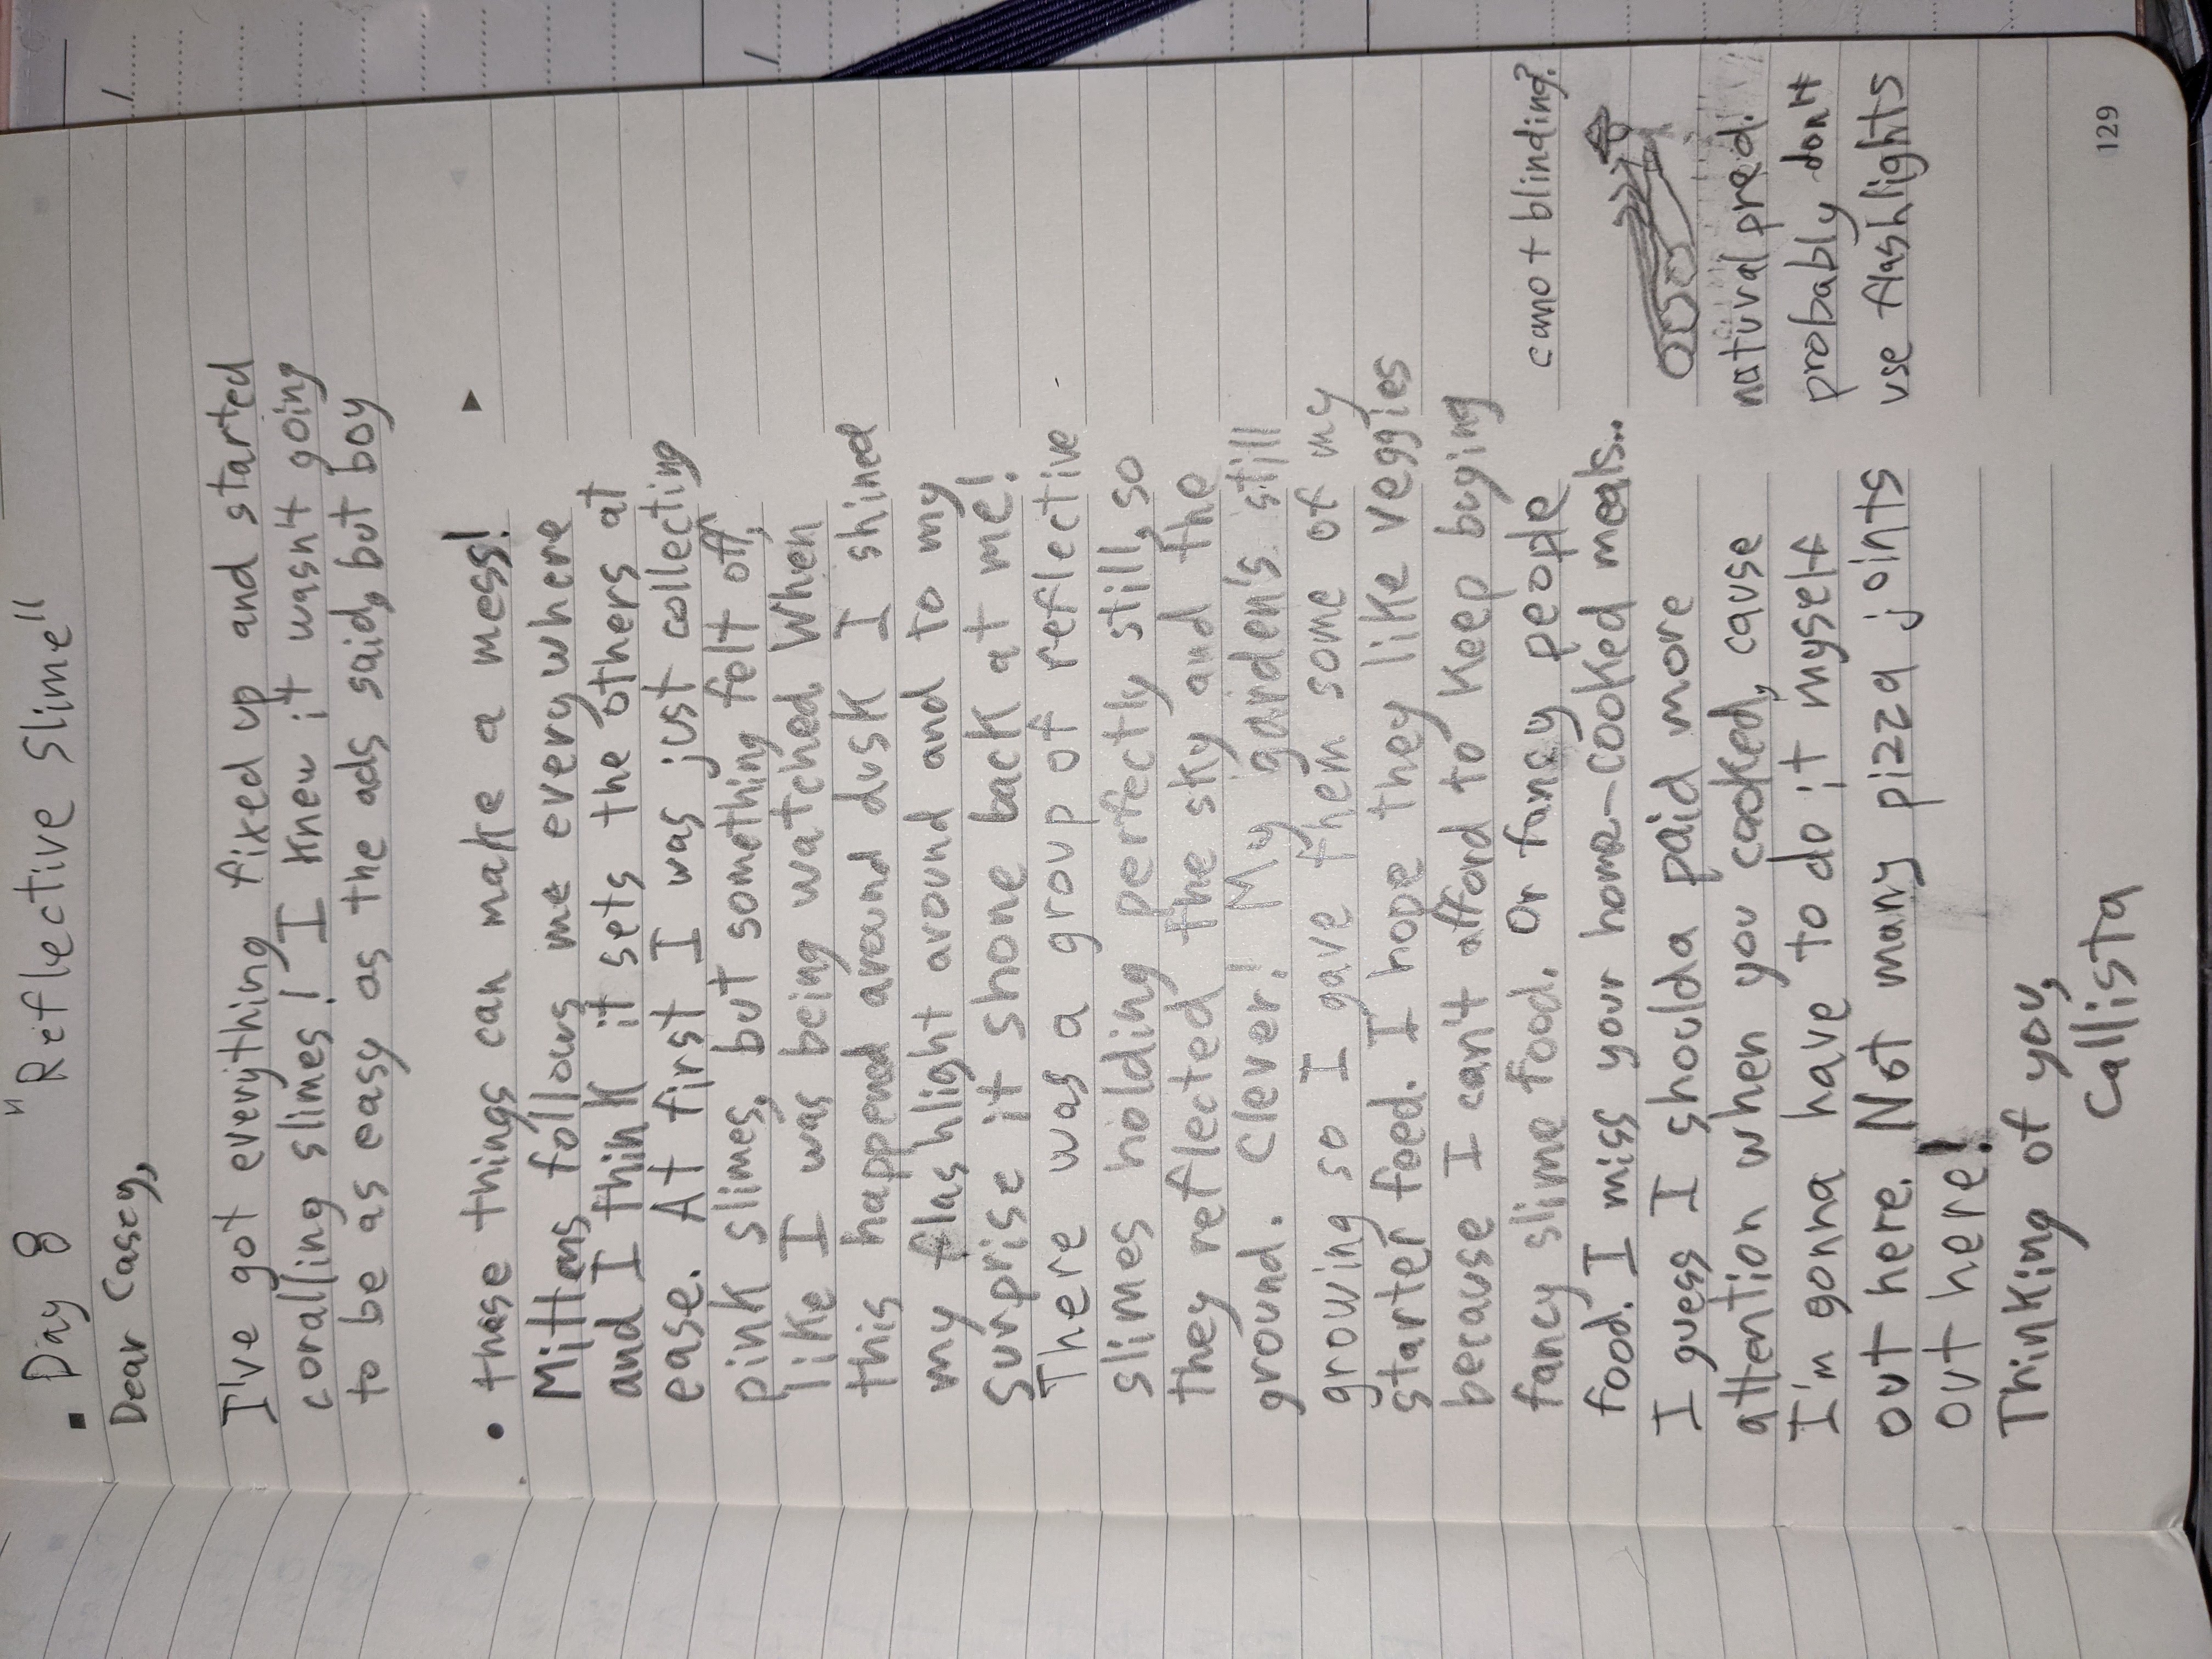 ▪ Day 8 "Reflective Slime"
Dear Casey,
I've got everything fixed up and started
coralling slimes! I knew it wasn't going
to be as easy as the ads said, but boy
• these things can make a mess!
Mittens follows me everywhere
and I think it sets the others at
ease. At first I was just collecting
pink slimes, but something felt off,
like I was being watched. When
this happened around dusk I shined
my flashlight around and to my
surprise it shone back at me!
There was a group of reflective
slimes holding perfectly still, so
they reflected the sky and the
ground. Clever! My garden's still
growing so I gave them some of my
starter feed. I hope they like veggies
because I can't afford to keep buying
fancy slime food. Or fancy people
food. I miss your home-cooked meals..
I guess I shoulda paid more
attention when you cooked, cause
I'm gonna have to do it myself
out here. Not many pizza joints
out here!
Thinking of you,
Callista
camo + blinding?
natural pred.
probably don't
use flashlights
129